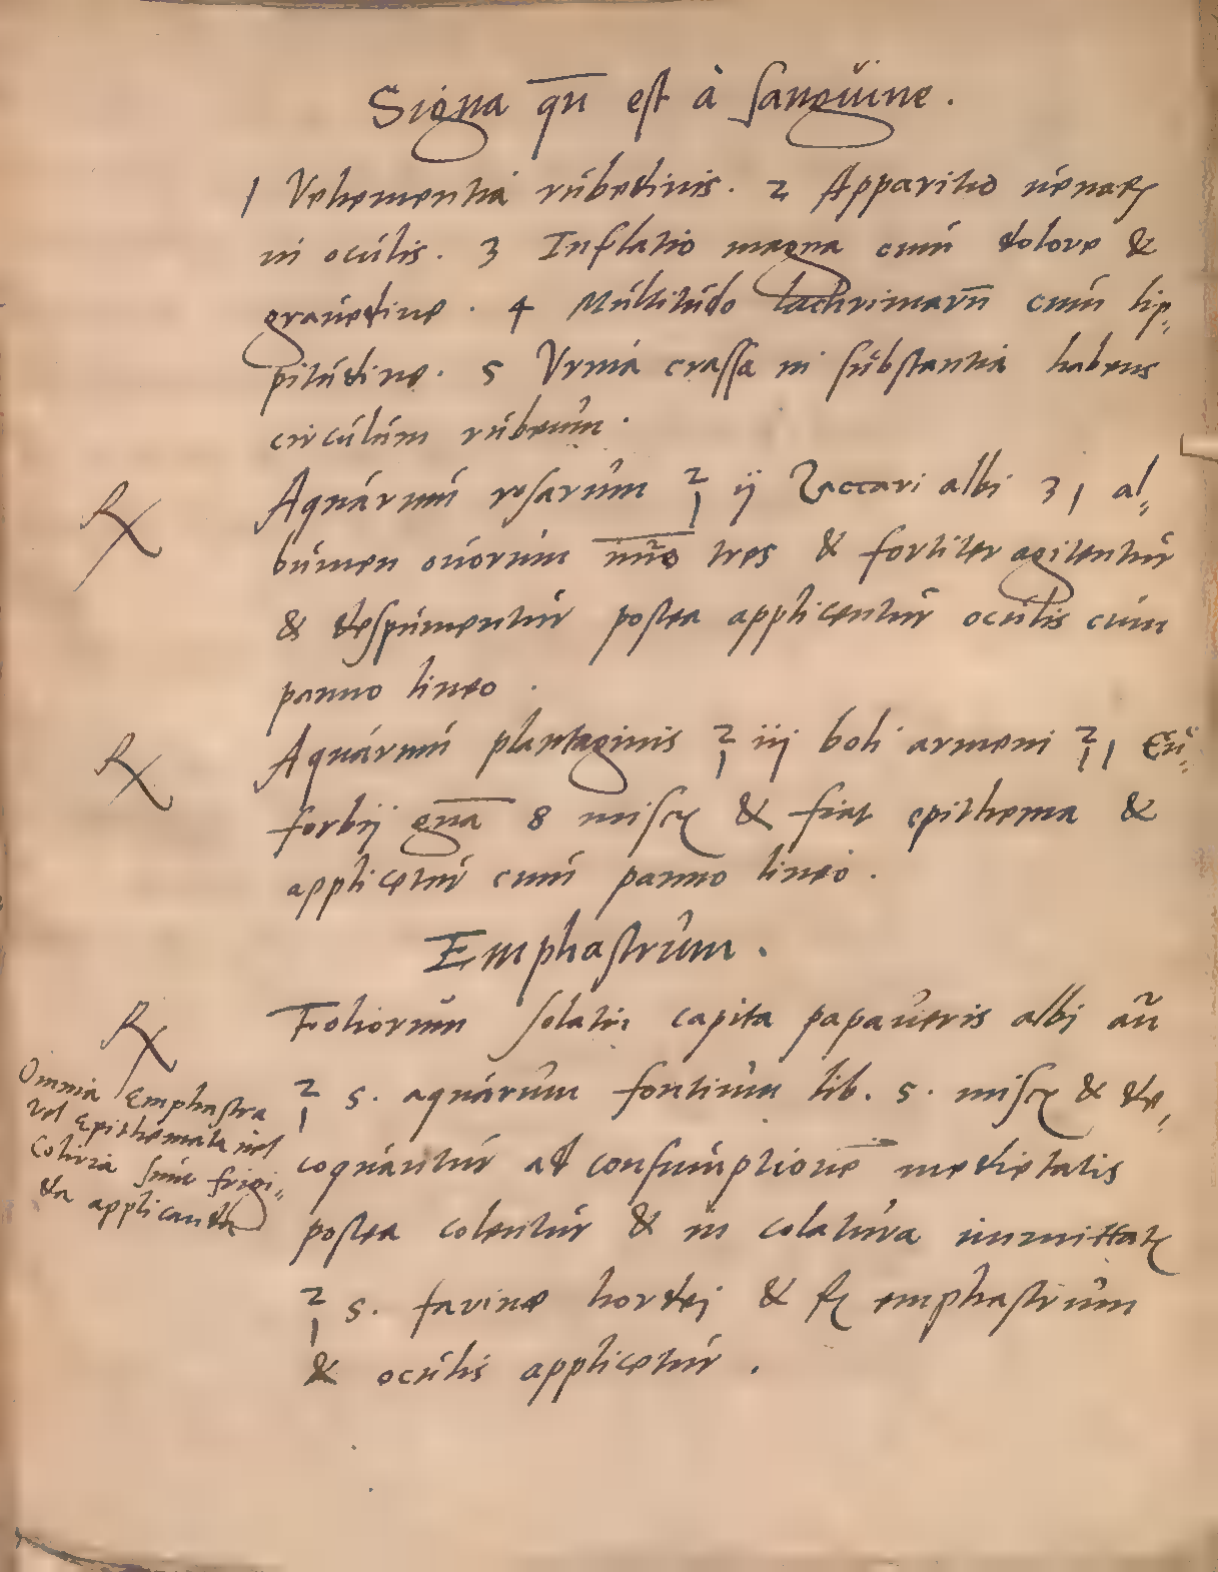 Signa qū est à sanguine.
1 Vehementia rubedinis. 2 Apparitio uenaꝝ
in oculis. 3 Inflatio magna cum dolore &
grauedine. 4 Multitudo lachrimarū cum lip-
pitudine. 5 Vrina crassa in substantia habens
circulum rubeum.
℞ Aquarum rosarum ℥ ij Zaccari albi ʒ 1 al-
bumen ouorum nūo tres & fortiter agitentur
& despumentur postea applicentur oculis cum
panno lineo.
℞ Aquarum plantaginis ℥ iij boli armeni ℥ 1 Eu-
forbij gna 8 misc & fiat epithema &
applicetur cum panno lineo.
Emphastrum.
℞ Foliorum solatri capita papaueris albi añ
℥ s. aquarum fontium lib. s. misc & de-
coquantur ad consumptionē medietatis
postea colentur & in colatura immittat
℥ s. farine hordej & f emphastrum
& oculis applicetur.
Omnia Emphastra
vel Epithemata uel
Coliria sint frigi-
da applicanda